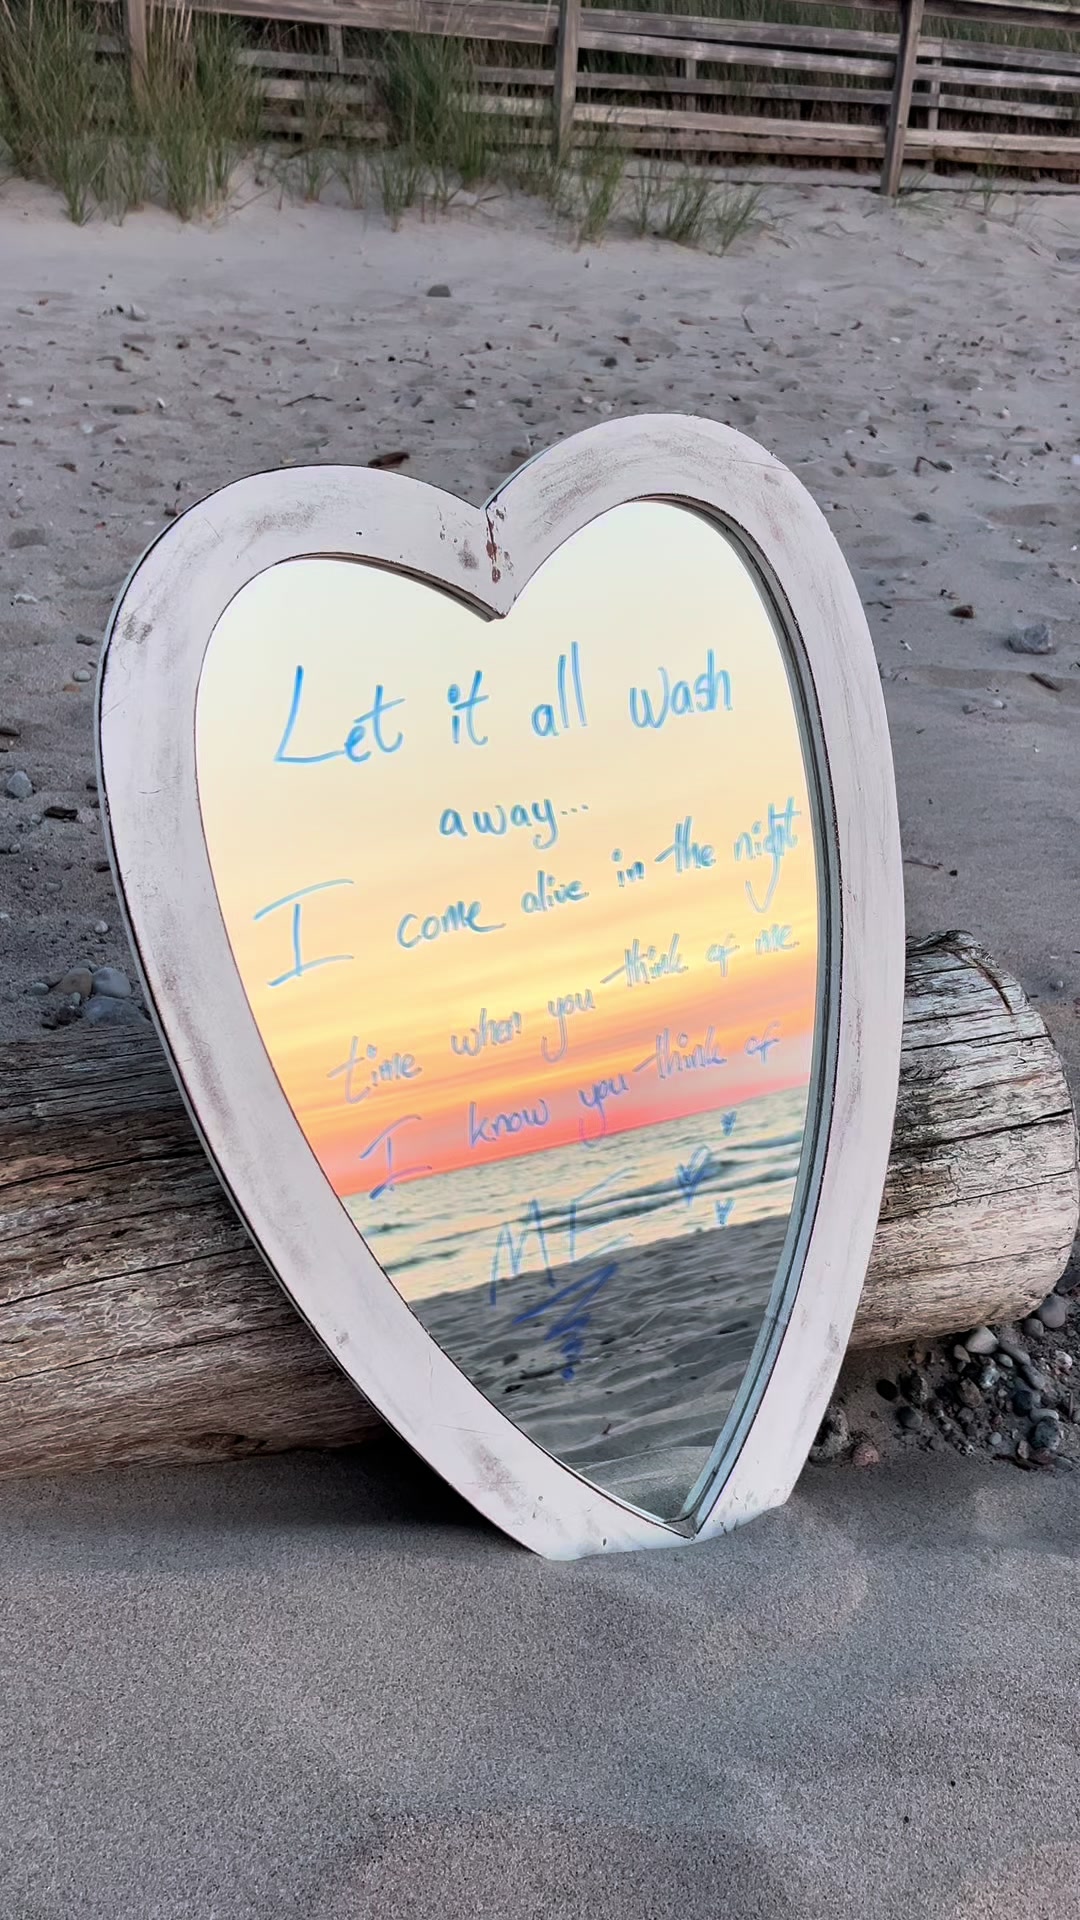 Let it all wash
away...
I come alive in the night
time when you think of me
I know you think of
ME